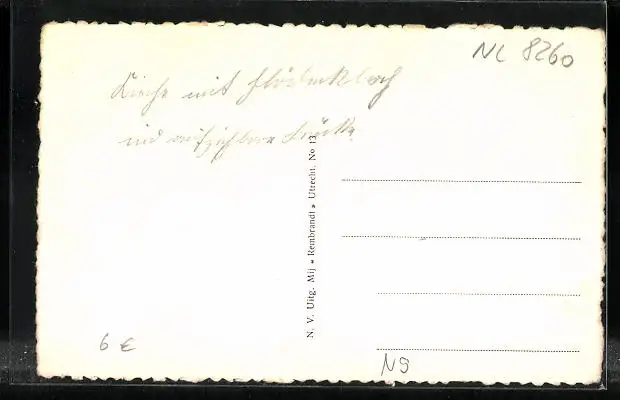 NL 8260
Kirche mit
und aufziehbare Brücke
N. V. Uitg. Mij « Rembrandt » Utrecht. No 13
6 €
N9